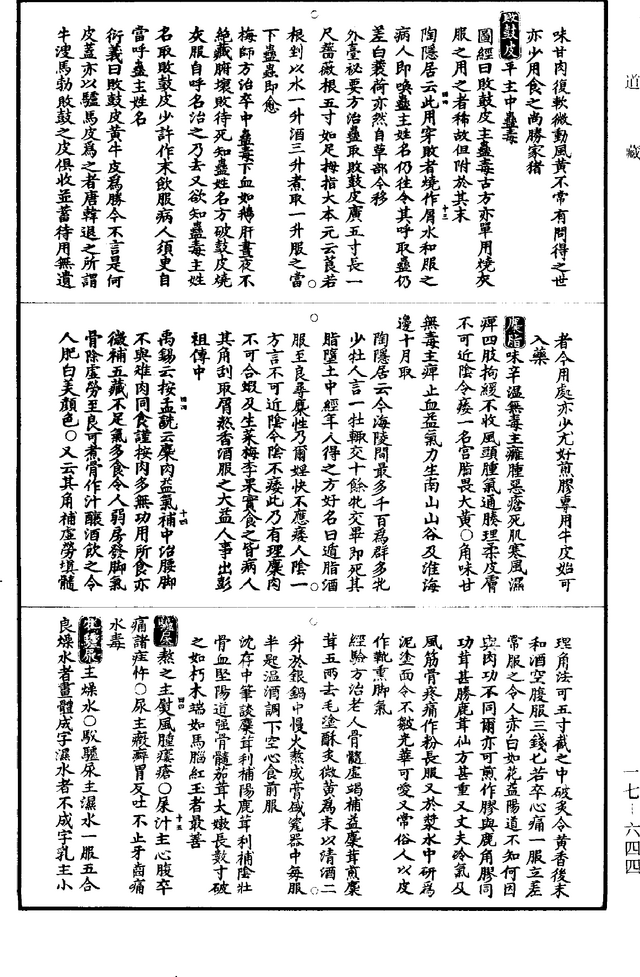 道藏
味甘肉復軟微動風黃不常有問得之世
亦少用食之尚勝家猪
敗鼓皮平主中蠱毒
圖經曰敗鼓皮主蠱毒古方亦單用燒灰
服之用之者稀故但附於其末
陶隱居云此用穿敗者燒作屑水和服之
病人即喚蠱主姓名仍往令其呼取蠱仍
差白蘘荷亦然自草部令移
外臺祕要方治蠱取敗鼓皮廣五寸長一
尺薔薇根五寸如足拇指大本元云莨若
根剉以水一升酒三升煮取一升服之當
下蠱蟲即愈
梅師方治卒中蠱毒下血如鵝肝晝夜不
絕藏腑壞敗待死知蠱姓名方破鼓皮燒
灰服自呼名治之乃去又欲知蠱毒主姓
名取敗鼓皮少許作末飲服病人須臾自
當呼蠱主姓名
衍義曰敗鼓皮黃牛皮爲勝今不言是何
皮蓋亦以驢馬皮爲之者唐韓退之所謂
牛溲馬勃敗鼓之皮俱收並蓄待用無遺
者今用處亦少尤好煎膠專用牛皮始可
入藥
麋脂味辛溫無毒主癰腫惡瘡死肌寒風濕
痺四肢拘緩不收風頭腫氣通腠理柔皮膚
不可近陰令痿一名宮脂畏大黃〇角味甘
無毒主痺止血益氣力生南山山谷及淮海
邊十月取
陶隱居云今海陵間最多千百爲群多牝
少牡人言一牡輒交十餘牝交畢即死其
脂墮土中經年人得之方好名曰遁脂酒
服至良尋麋性乃爾婬快不應痿人陰一
方言不可近陰令陰不痿此乃有理麋肉
不可合蝦及生菜梅李果實食之皆病人
其角刮取屑熬香酒服之大益人事出彭
祖傳中
禹錫云按孟詵云麋肉益氣補中治腰腳
不與雉肉同食謹按肉多無功用所食亦
微補五藏不足氣多食令人弱房發腳氣
骨除虛勞至良可煮骨作汁釀酒飲之令
人肥白美顏色〇又云其角補虛勞填髓
理角法可五寸截之中破炙令黃香後末
和酒空腹服三錢匕若卒心痛一服立差
常服之令人赤白如花益陽道不知何因
與肉功不同爾亦可煎作膠與鹿角膠同
功茸甚勝鹿茸仙方甚重又丈夫冷氣及
風筋骨疼痛作粉長服又於漿水中研爲
泥塗面令不皺光華可愛又常俗人以皮
作靴熏腳氣
經驗方治老人骨髓虛竭補益麋茸煎麋
茸五兩去毛塗酥炙微黃爲末以清酒二
升於銀鍋中慢火熬成膏盛瓷器中每服
半匙溫酒調下空心食前服
沈存中筆談麋茸利補陽鹿茸利補陰壯
骨血堅陽道强骨髓茄茸太嫩長數寸破
之如朽木端如馬腦紅玉者最善
驢屎熬之主熨風腫瘻瘡〇屎汁主心腹卒
痛諸疰忤〇尿主癥癖胃反吐不止牙齒痛
水毒
牝驢尿主燥水〇駁驢尿主濕水一服五合
良燥水者畫體成字濕水者不成字乳主小
一七-六四四